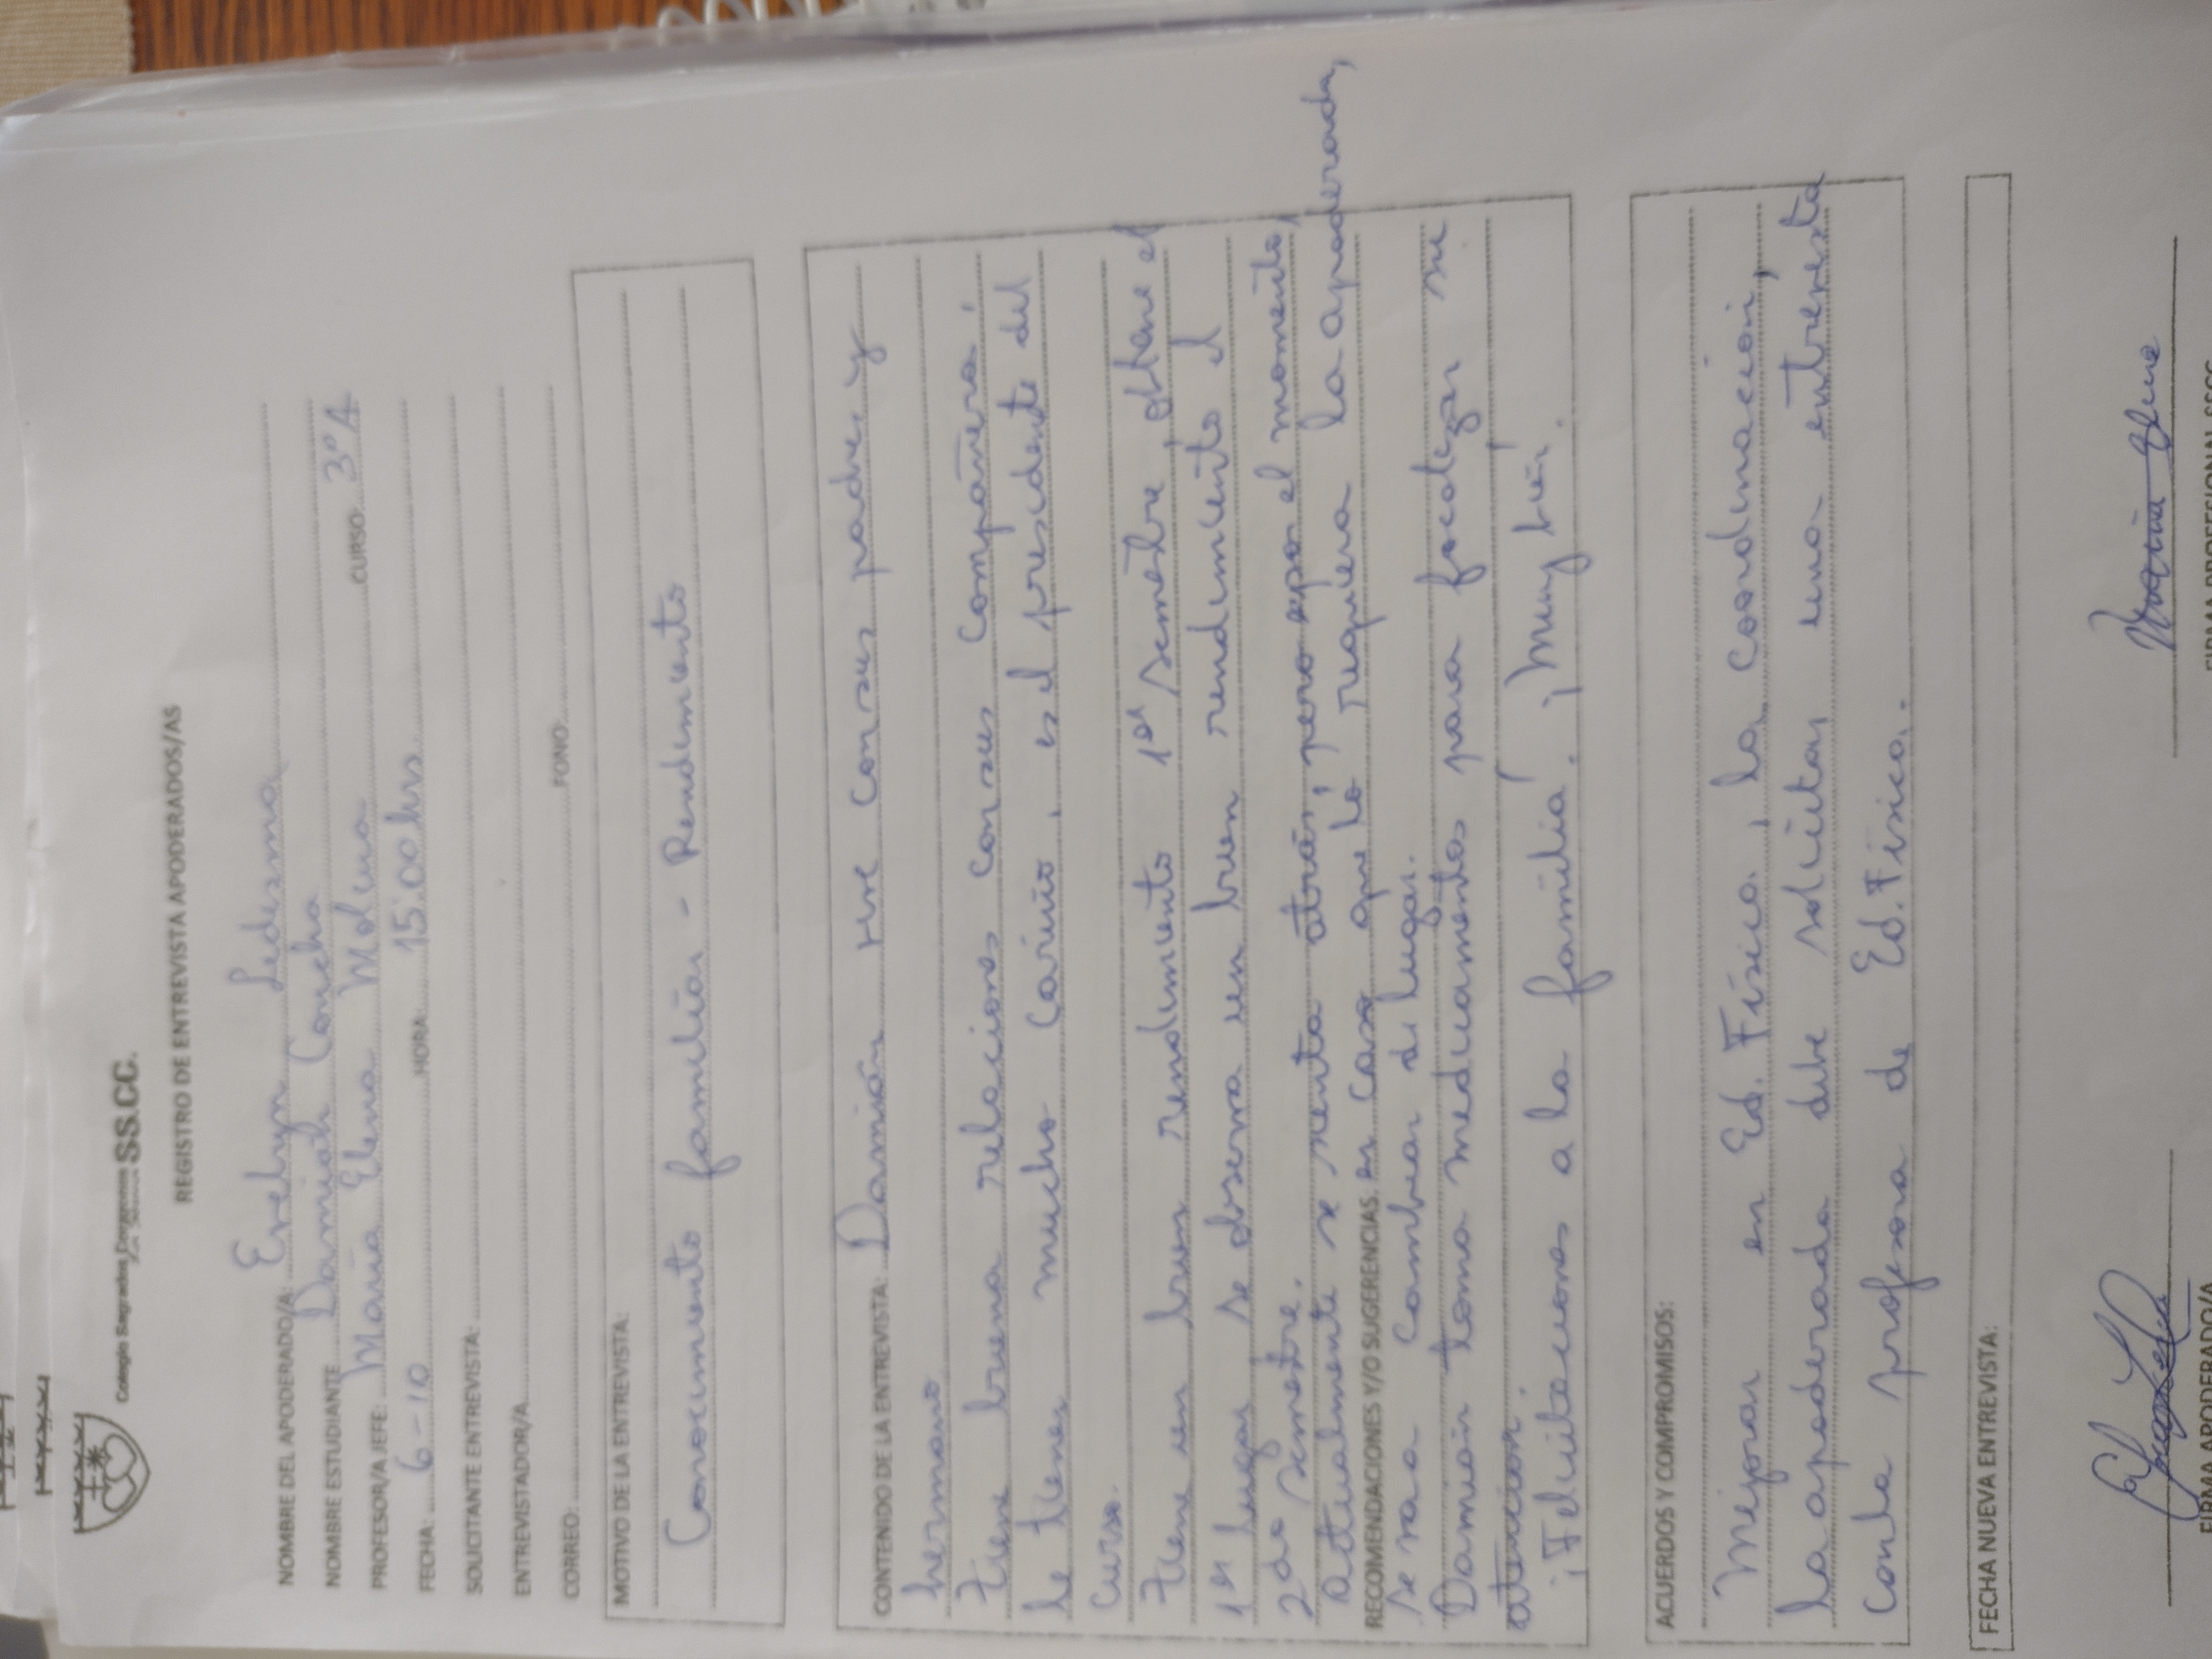 Colegio Sagrados Corazones SS.CC.
REGISTRO DE ENTREVISTA APODERADOS/AS
NOMBRE DEL APODERADO/A: Evelyn Ledesma
NOMBRE ESTUDIANTE Damián Concha CURSO: 3º A
PROFESOR/A JEFE: María Elena Molina
FECHA: 6-10 HORA: 15:00 hrs
SOLICITANTE ENTREVISTA:
ENTREVISTADOR/A
CORREO: FONO:
MOTIVO DE LA ENTREVISTA:
Conocimiento familiar - Rendimiento
CONTENIDO DE LA ENTREVISTA: Damián vive con sus padres y
hermano.
Tiene buena relaciones con sus compañeros,
le tienen mucho cariño, es el presidente del
curso.
Tiene un buen rendimiento 1er semestre, obtiene el
1er lugar, se observa un buen rendimiento el
2do semestre.
Actualmente se sienta atrás, pero por el momento,
RECOMENDACIONES Y/O SUGERENCIAS. en caso que lo requiera la apoderada,
se va a cambiar de lugar.
Damián toma medicamentos para focalizar su
atención.
¡Felicitaciones a la familia! ¡Muy bien!
ACUERDOS Y COMPROMISOS:
Mejorar en Ed. Física, la coordinación,
la apoderada debe solicitar una entrevista
con la profesora de Ed. Física.
FECHA NUEVA ENTREVISTA:
FIRMA APODERADO/A FIRMA PROFESIONAL SSCC